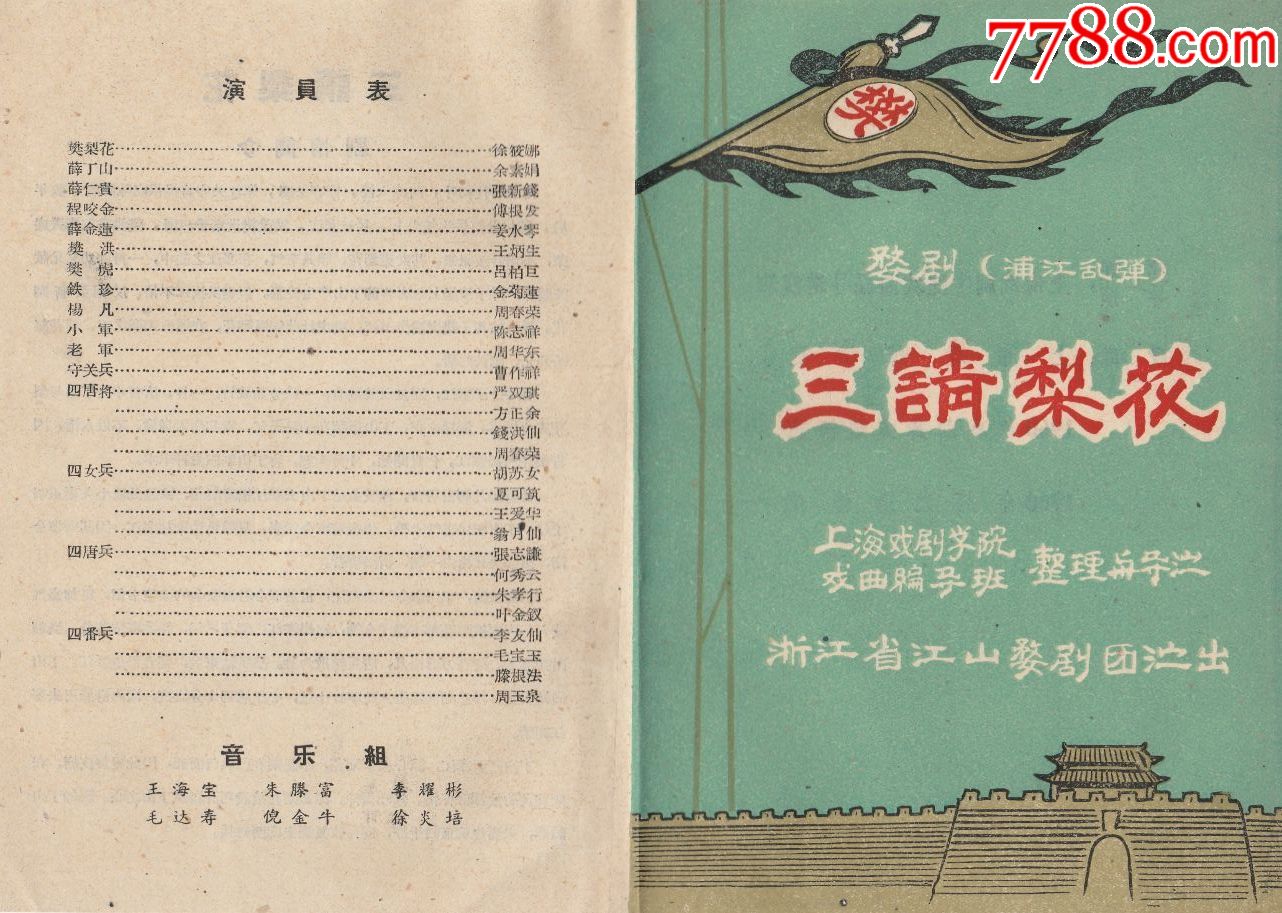 演員表
樊梨花 徐筱娜
薛丁山 余素娟
薛仁貴 張新錢
程咬金 傅根发
薛金蓮 姜水琴
樊洪 王炳生
樊虎 呂柏巨
鉄珍 金菊蓮
楊凡 周春荣
小軍 陈志祥
老軍 周华东
守关兵 曹作祥
四唐将 严双琪
方正余
錢洪仙
周春荣
四女兵 胡苏女
夏可筑
王爱华
翁月仙
四唐兵 張志謙
何秀云
朱孝行
叶金釵
四番兵 李友仙
毛宝玉
滕根法
周玉泉
音乐組
王海宝 朱滕富 李耀彬
毛达寿 倪金牛 徐炎培
7788.com
樊
婺剧(浦江乱弹)
三請梨花
上海戏剧学院
戏曲編导班 整理与导演
浙江省江山婺剧团演出